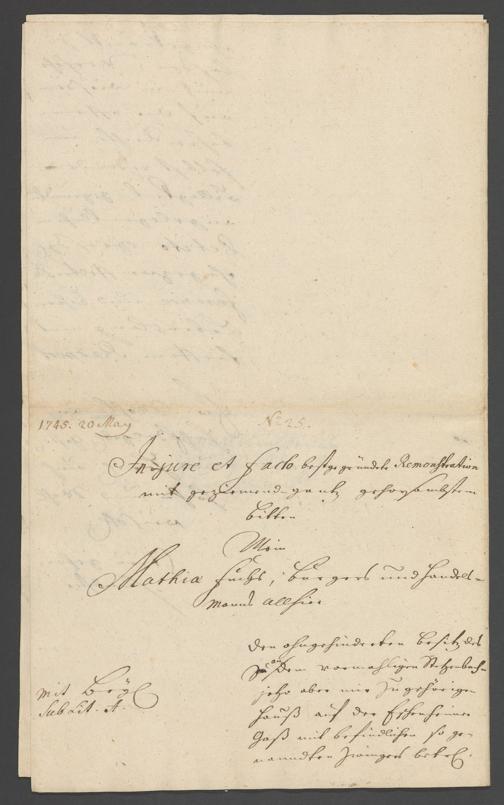 1745. 20 May
No 25.
In jure et facto bestgegründete Remonstration
mit geziemend- gantz gehorsambstem
Bitten
Mein
Mathia Fuchs, Burgers und Handels-
manns allhier
Den ohngehinderten Besitz des
an dem vormahligen
jetzo aber mir zugehörigen
Hauß auf der Eschenheimer
Gaß mit befindlichen so ge-
nanndten Zwingers betrl.
Mit Beyl
Sub Lit. A.